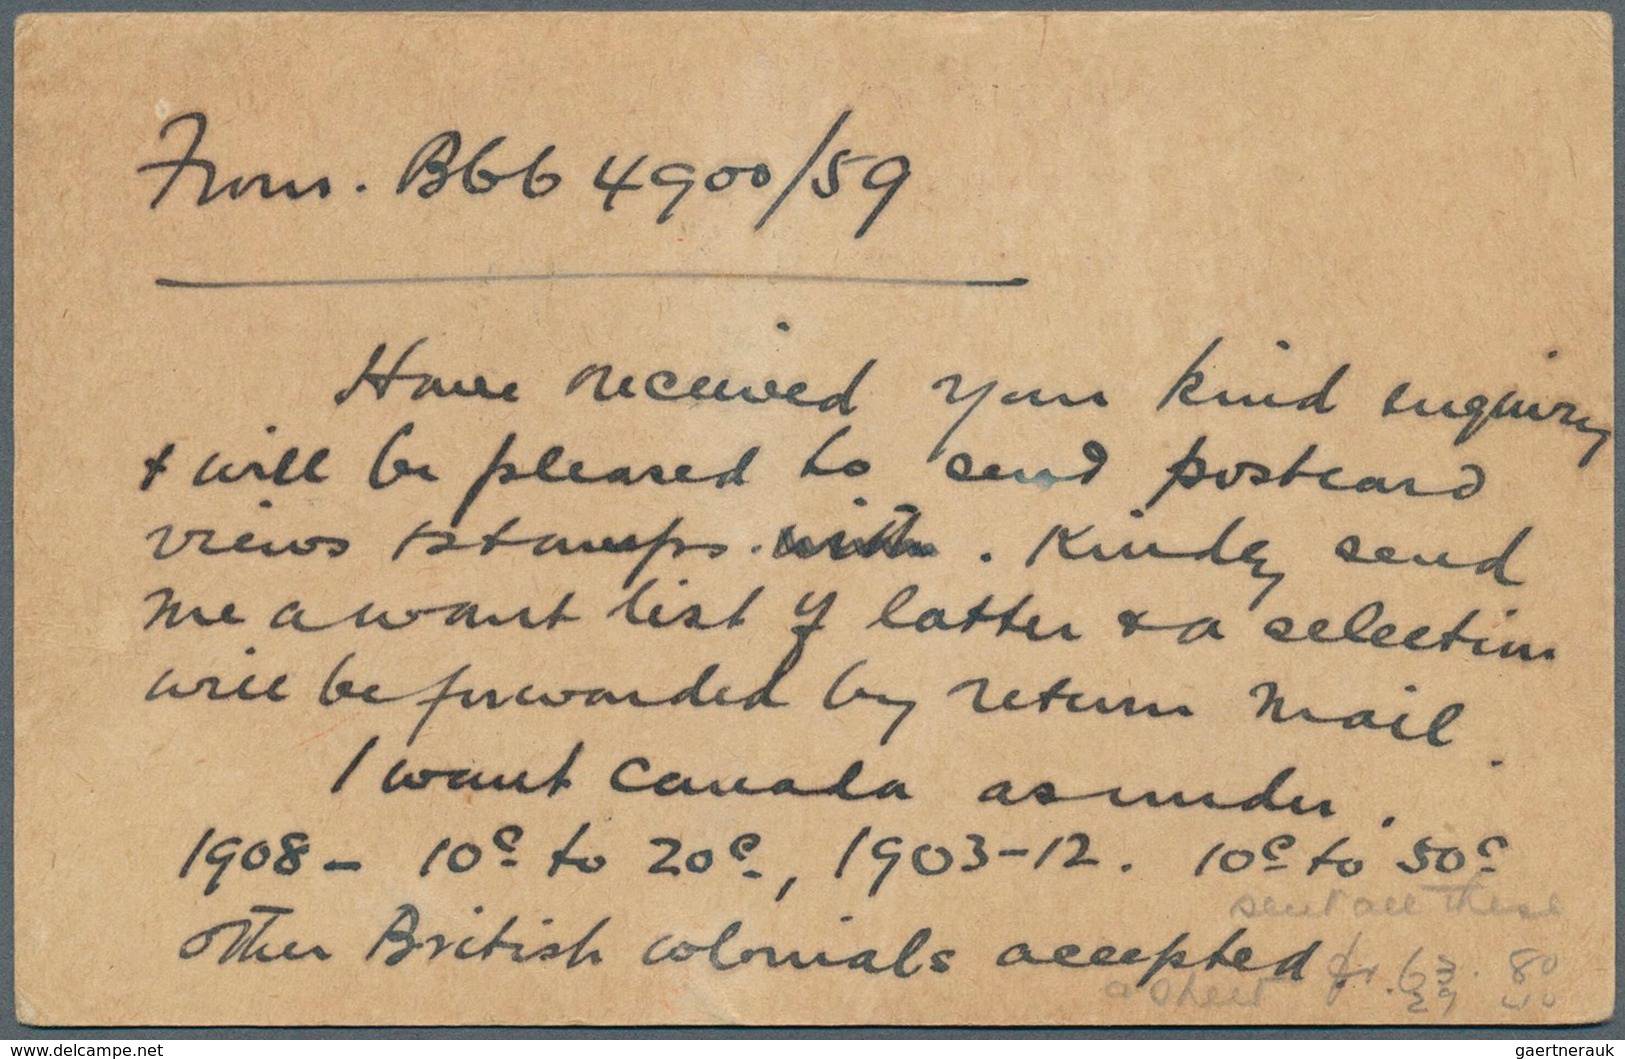 From. B66 4900/59
Have received your kind enquiry
& will be pleased to send postcard
views & stamps. with. Kindly send
me a want list of latter & a selection
will be forwarded by return mail.
I want Canada as under.
1908 - 10c to 20c, 1903-12. 10c to 50c
sent all these
other British colonials accepted
a sheet fr. 63. 80
39
delcampe.net
gaertnerauk